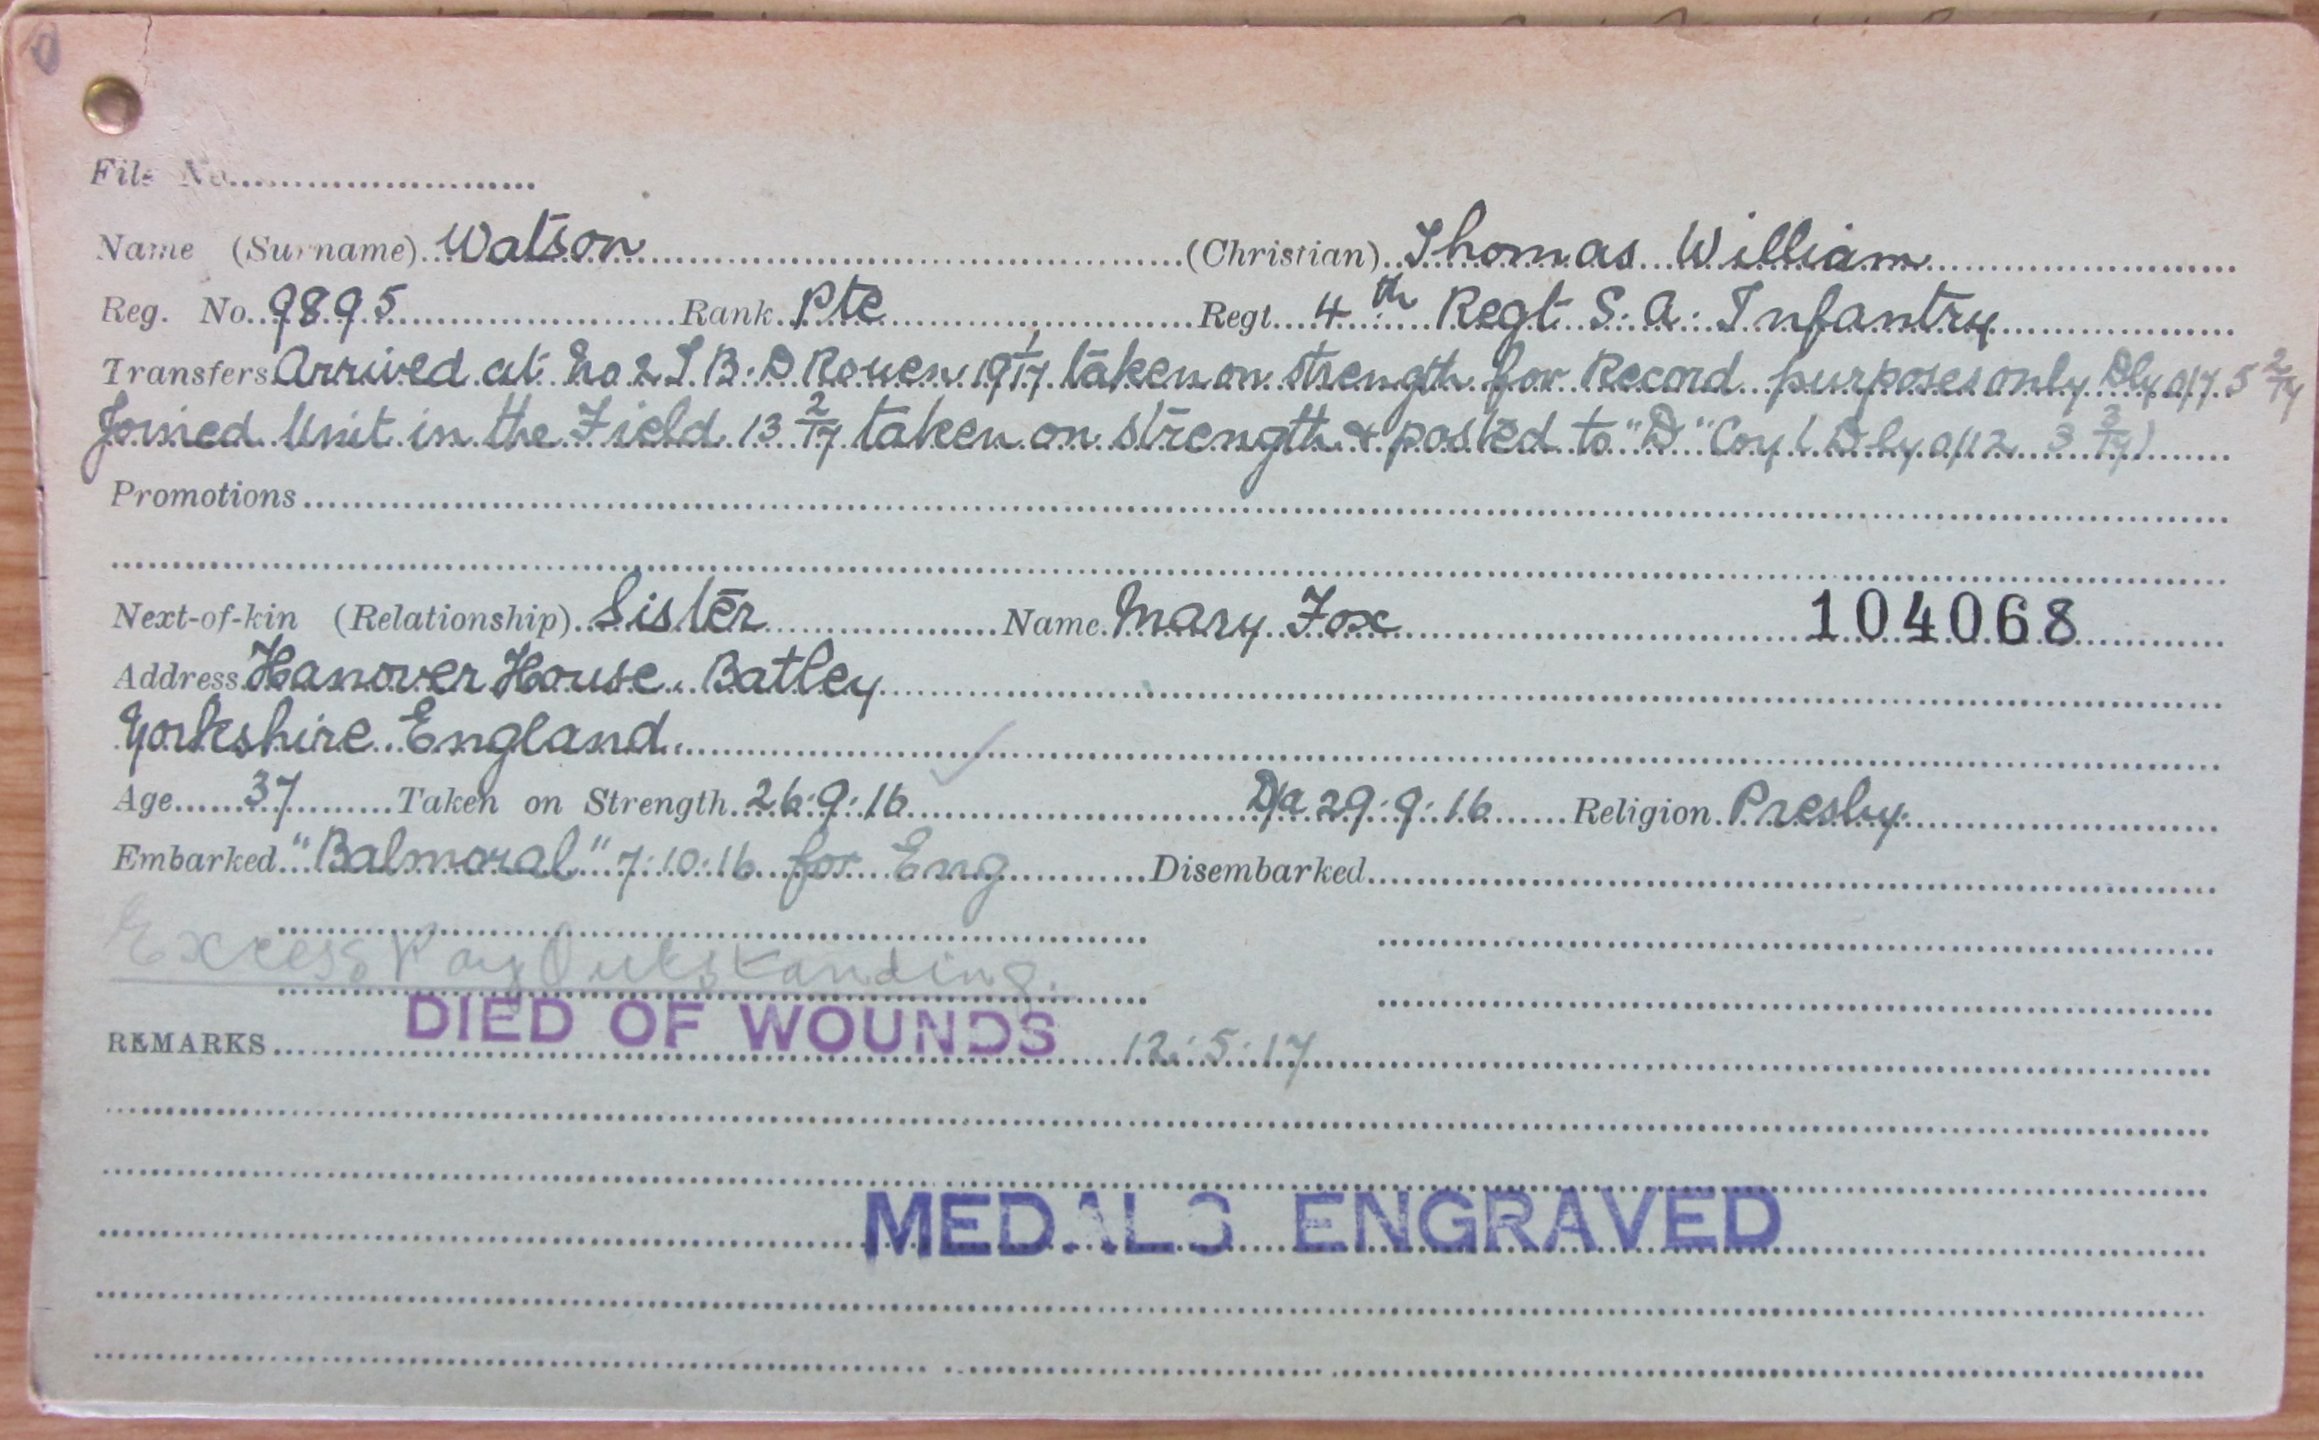 File No.
Name (Surname) Watson (Christian) Thomas William
Reg. No. 9895 Rank Pte Regt. 4th Regt S. A. Infantry
Transfers Arrived at No 2 I. B. D Rouen 19 1/17 taken on strength for Record purposes only Dly o/17 5 2/17
Joined Unit in the Field 13 2/17 taken on strength & posted to "D" Coy (Dly o/12 3 3/17)
Promotions
Next-of-kin (Relationship) Sister Name Mary Fox 104068
Address Hanover House, Batley
Yorkshire England
Age 37 Taken on Strength 26.9.16 D/a 29.9.16 Religion Presby.
Embarked "Balmoral" 7.10.16 for Eng Disembarked
Excess Pay Outstanding.
REMARKS DIED OF WOUNDS 12.5.17
MEDALS ENGRAVED